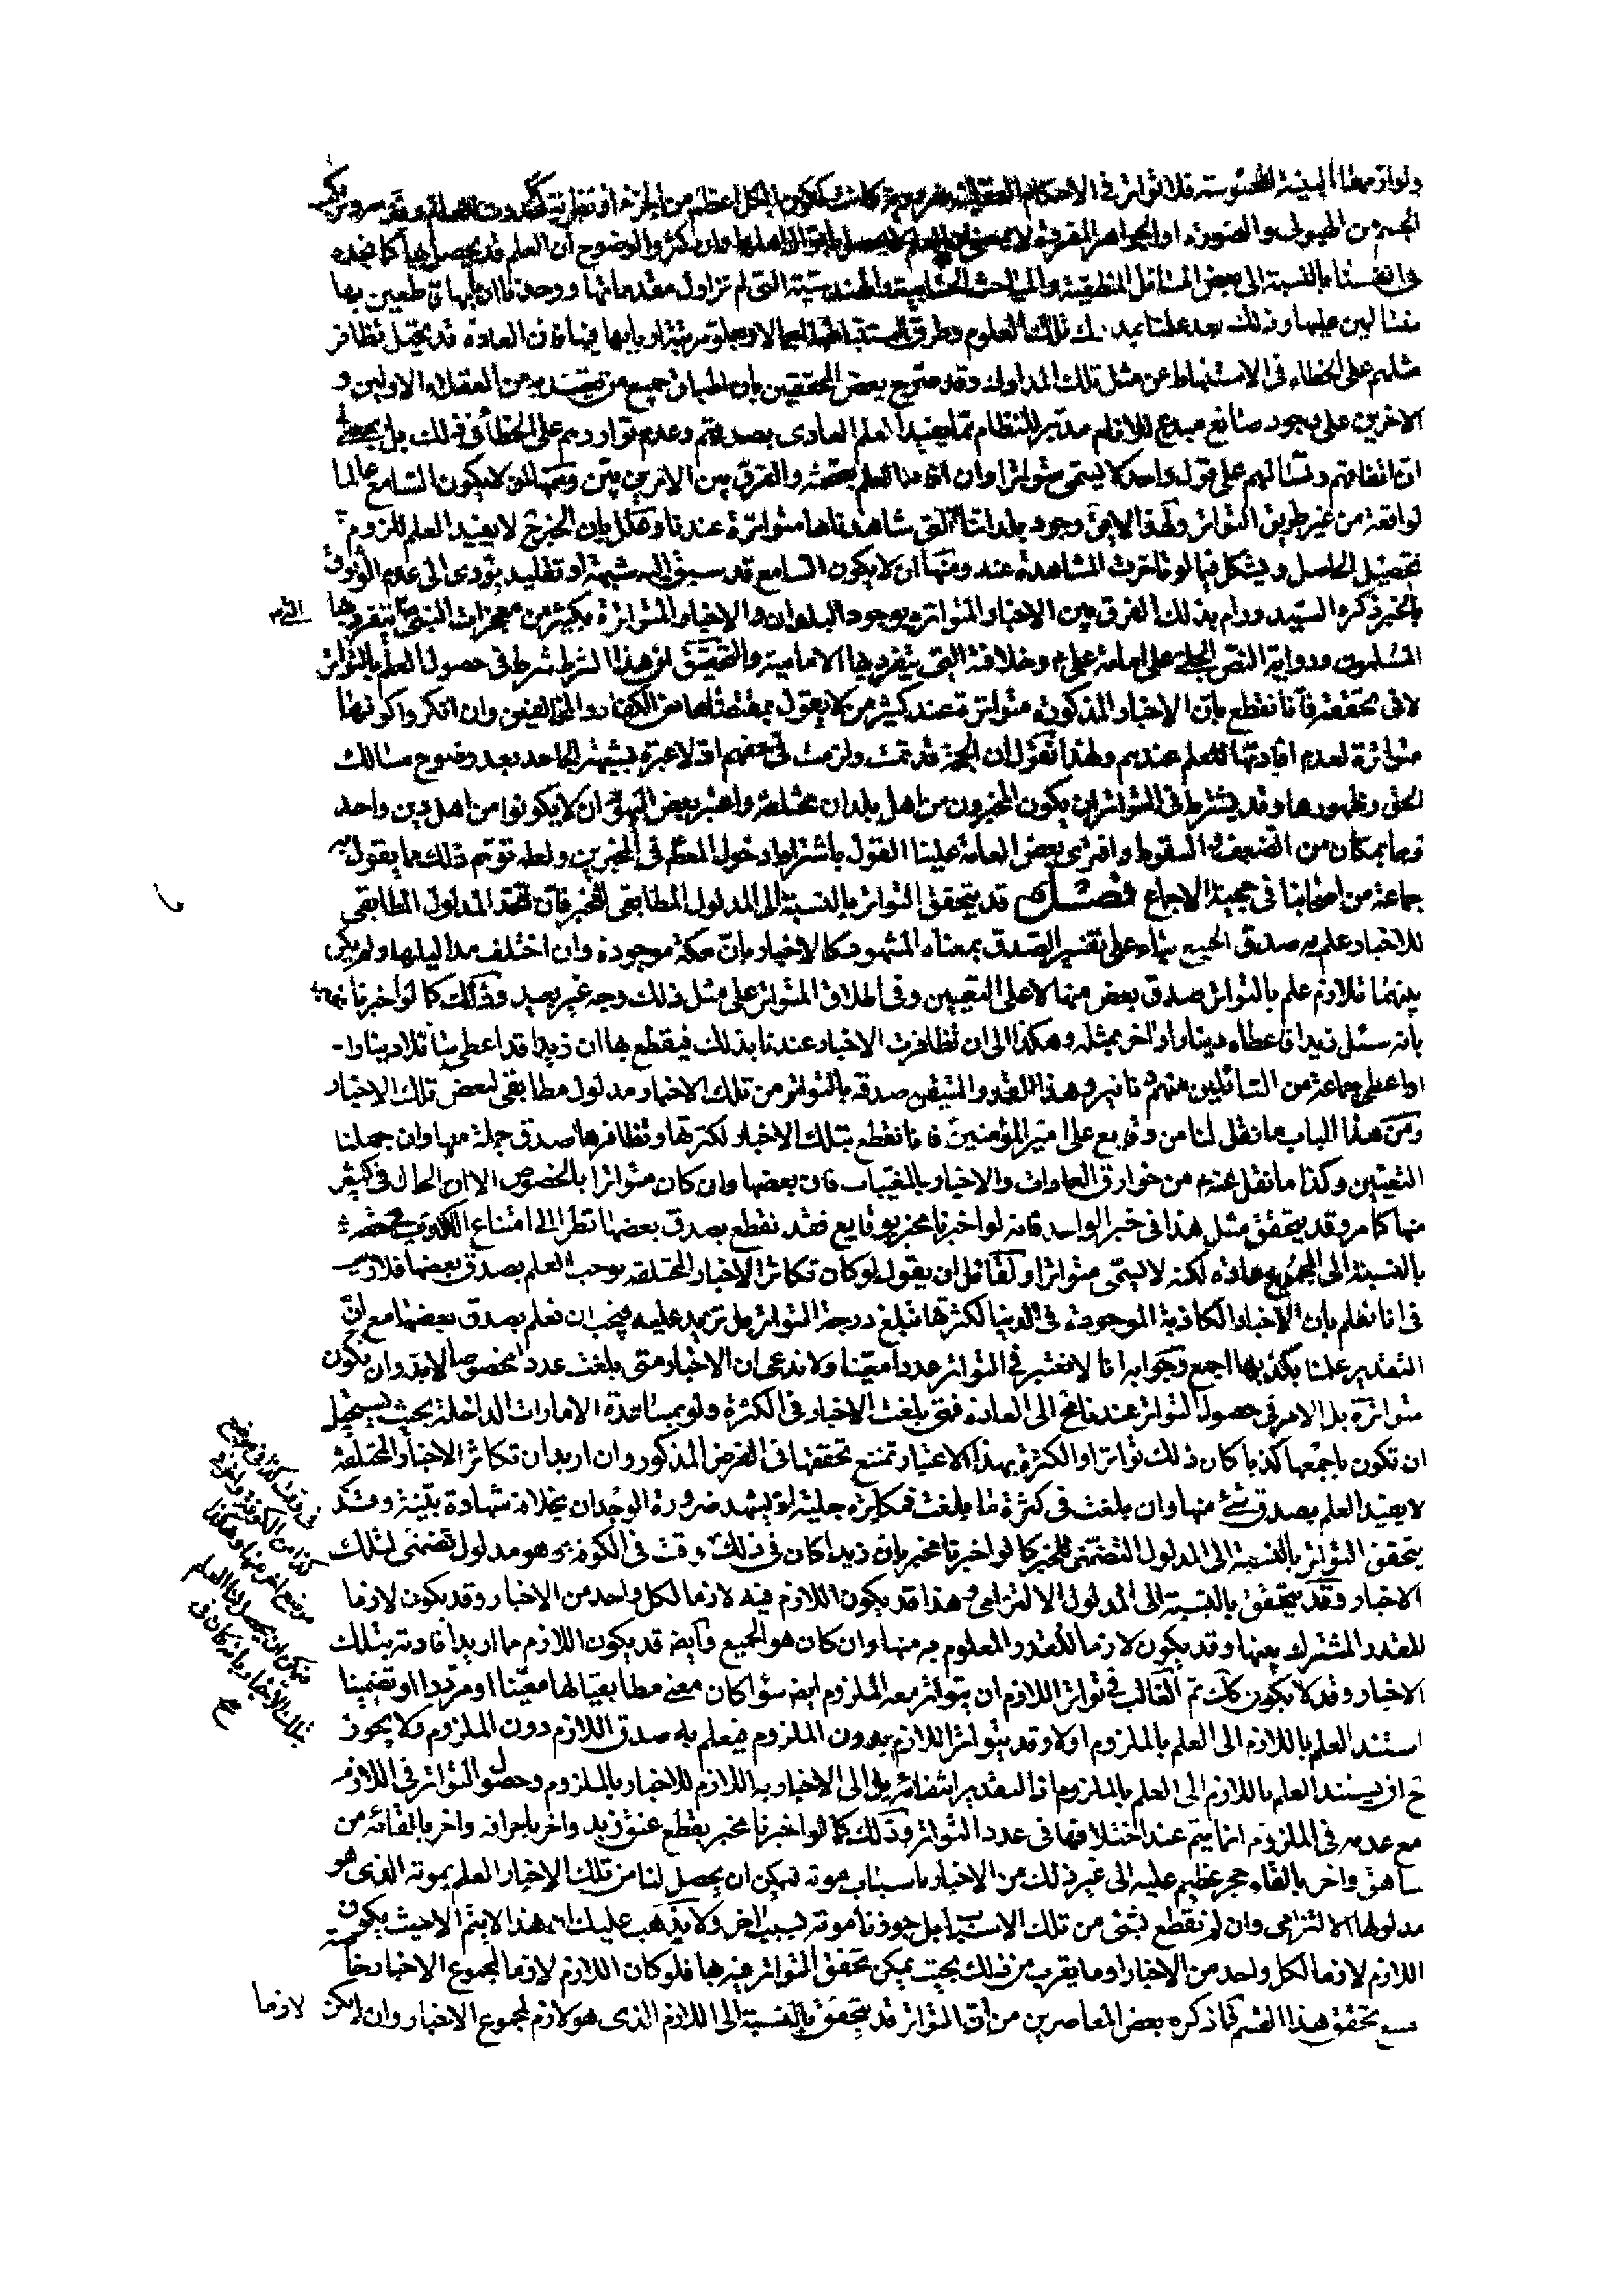 ولوازمها البينة المحسوسة فلا تواتر في الاحكام العقلية ضرورية كانت ككون الكل اعظم من الجزء او نظرية كحدوث العالم وقدم
الجسم من الهيولى والصورة او الجواهر المفردة لا بمعنى ان العلم لا يحصل باقوال اهلها وان كثروا لوضوح ان العلم قد يحصل بها كما نجده
في انفسنا بالنسبة الى بعض المسائل المنطقية والمباحث الحسابية والهندسية التي لم نزاول مقدماتها ووجدنا اربابها قاطعين بها
متسالمين عليها وذلك بعد علمنا تلك العلوم وطرق استنباطها اجمالا وعلو مرتبة اربابها فيها فان العادة قد تحيل تظافر
مثلهم على الخطاء في الاستنباط عن مثل تلك المدارك وقد صرح بعض المحققين بان اطباق جميع من يعتد به من العقلاء الاولين و
الاخرين على وجود صانع مبدع للانام مدبر للنظام مما يفيد العلم العادي بصدقهم وعدم تواردهم على الخطأ في ذلك بل
ان اتفاقهم وتسالمهم على قول واحد لا يسمى متواترا وان افادنا العلم بصحته والفرق بين الامرين بين ومنها ان لا يكون السامع عالما
لواقعة من غير طريق التواتر ولهذا لا يكون وجود بلداننا التي شاهدناها متواترة عندنا وعلل بان الخبر ح لا يفيد العلم للزوم
تحصيل الحاصل ويشكل فيما لو تاخرت المشاهدة عنه ومنها ان لا يكون السامع قد سبق اليه شبهة او تقليد يؤدى الى عدم الوثوق
بالخبر ذكره السيد ورام بذلك الفرق بين الاخبار المتواترة بوجود البلدان والاخبار المتواترة بكثير من معجزات النبي ص يتفرد بها
المسلمون ورواية النص الجلي على امامة علي ع وخلافته التي يتفرد بها الامامية والتحقيق ان هذا الشرط شرط في حصول العلم بالتواتر
لا في تحققه فانا نقطع بان الاخبار المذكورة متواترة عند كثير من لا يقول بمقتضاها من الكفار والمخالفين وان انكروا كونها
متواترة لعدم افادتها للعلم عندهم ولهذا نقول ان الحجة قد تمت ولزمت في حقهم اذ لا عبرة بشبهة الجاحد بعد وضوح مسالك
الحق وظهورها وقد يشترط في التواتر ان يكون المخبرون من اهل بلدان مختلفة واعتبر بعض اليهود ان لا يكونوا من اهل دين واحد
وهما بمكان من الضعف والسقوط وافترى بعض العامة علينا القول باشتراط دخول المعصوم في المخبرين ولعله توهم ذلك مما يقول به
جماعة من اصحابنا في حجية الاجماع فصل قد يتحقق التواتر بالنسبة الى المدلول المطابقي للخبر فان اتحد المدلول المطابقي
للاخبار علم به صدق الجميع بناء على تفسير الصدق بمعناه المشهور كالاخبار بان مكة موجودة وان اختلف مداليلها ولم يكن
بينهما تلازم علم بالتواتر صدق بعض منها لا على التعيين وفي اطلاق المتواتر على مثل ذلك وجه غير بعيد وذلك كما لو اخبرنا
بانه سئل زيدا فاعطاه دينارا واخر بمثله وهكذا الى ان تظافرت الاخبار عندنا بذلك فيقطع بها ان زيدا قد اعطى سائلا دينارا
او اعطى جماعة من السائلين منهم دنانير وهذا القدر المتيقن صدقه بالتواتر من تلك الاخبار مدلول مطابقي لبعض تلك الاخبار
ومن هذا الباب ما نقل لنا من وقايع على امير المؤمنين فانا نقطع بتلك الاخبار لكثرتها وتظافرها صدق جملة منها وان جهلنا
التعيين وكذا ما نقل عنه من خوارق العادات والاخبار بالمغيبات فان بعضها وان كان متواترا بالخصوص الا ان الحال في كثير
منها كما مر وقد يتحقق مثل هذا في خبر الواحد فانه لو اخبرنا مخبر بوقايع فقد نقطع بصدق بعضها نظرا الى امتناع الكذب في حقه
بالنسبة الى المجموع عادة لكنه لا يسمى متواترا ولقائل ان يقول لو كان تكاثر الاخبار المختلفة يوجب العلم بصدق بعضها فلا ريب
في انا نعلم بان الاخبار الكاذبة الموجودة في الدنيا لكثرتها تبلغ درجة التواتر بل تزيد عليه فيجب ان نعلم بصدق بعضها مع ان
التقدير علمنا بكذبها اجمع وجوابه انا لا نعتبر في التواتر عددا معينا ولا ندعي ان الاخبار متى بلغت عددا مخصوصا لابد وان يكون
متواترة بل الامر في حصول التواتر عندنا يرجع الى العادة فمتى بلغت الاخبار في الكثرة ولو بمساعدة الامارات الداخلة بحيث يستحيل
ان تكون باجمعها كذبا كان ذلك تواترا والكثرة بهذا الاعتبار تمتنع تحققها في الفرض المذكور وان اريد ان تكاثر الاخبار المختلفة
لا يفيد العلم بصدق شئ منها وان بلغت في كثرة ما بلغت فمكابرة جلية اذ يشهد ضرورة الوجدان بخلافه شهادة بينة وقد
يتحقق التواتر بالنسبة الى المدلول التضمني للخبر كما لو اخبرنا مخبر بان زيدا كان في ذلك وقت في الكوفة وهو مدلول تضمني لتلك
الاخبار وقد يتحقق بالنسبة الى المدلول الالتزامي وهذا قد يكون اللازم فيه لازما لكل واحد من الاخبار وقد يكون لازما
للقدر المشترك بينها وقد يكون لازما للقدر المعلوم به منها وان كان هو الجميع وايضا قد يكون اللازم مما اريد افادته بتلك
الاخبار وقد لا يكون كذلك ثم الغالب في تواتر اللازم ان يتواتر معه الملزوم ايضا سواء كان معنى مطابقيا لها معينا او مرددا او تضمنيا
استند العلم باللازم الى العلم بالملزوم اولا وقد يتواتر اللازم بدون الملزوم فيعلم به صدق اللازم دون الملزوم ولا يجوز
ح ان يستند العلم باللازم الى العلم بالملزوم اذ التقدير انتفائه بل الى الاخبار به اللازم للاخبار بالملزوم وحصول التواتر في اللازم
مع عدمه في الملزوم انما يتم عند اختلافهما في عدد التواتر وذلك كما لو اخبرنا مخبر بقطع عنق زيد واخر باحراقه واخر بالقائه من
شاهق واخر بالقاء حجر عظيم عليه الى غير ذلك من الاخبار باسباب موته فيمكن ان يحصل لنا من تلك الاخبار العلم بموته الذي هو
مدلولها الالتزامي وان لم نقطع بشئ من تلك الاسباب بل جوزنا موته بسبب اخر ولا يذهب عليك ان هذا لا يتم الا حيث يكون
اللازم لازما لكل واحد من الاخبار او ما يقرب من ذلك بحيث يمكن تحقق التواتر فيه بها فلو كان اللازم لازما لمجموع الاخبار خاصة
تحقق هذا القسم فما ذكره بعض المعاصرين من ان التواتر قد يتحقق بالنسبة الى اللازم الذي هو لازم لمجموع الاخبار وان لم يكن لازما
في وقت كذا في موضع
كذا من الكوفة واخر في
موضع اخر منها وهكذا
فيمكن ان يحصل لنا العلم
بتلك الاخبار بانه كان في
صح